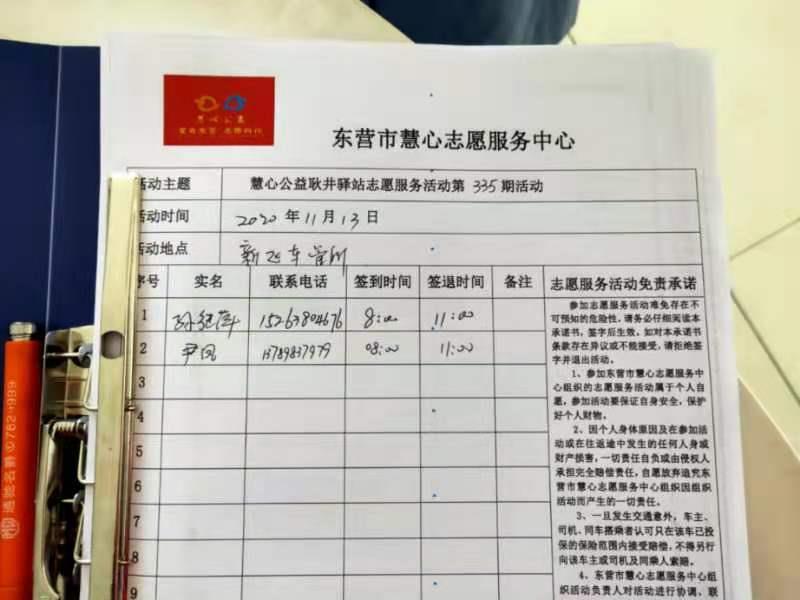 慧心公益
东营市慧心志愿服务中心
活动主题 慧心公益耿井驿站志愿服务活动第 335 期活动
活动时间 2020 年 11 月 13 日
活动地点 新 车管所
序号 实名 联系电话 签到时间 签退时间 备注 志愿服务活动免责承诺
1 15263804676 8:00 11:00
2 尹凤 13789837979 08:00 11:00
3
4
5
6
7
8
9
参加志愿服务活动难免存在不
可预知的危险性，请务必仔细阅读本
承诺书，签字后生效。如对本承诺书
条款存在异议或不能接受，请拒绝签
字并退出活动。
1、参加东营市慧心志愿服务中
心组织的志愿服务活动属于个人自
愿，参加活动要保证自身安全，保护
好个人财物。
2、因个人身体原因及在参加活
动或在往返途中发生的任何人身或
财产损害，一切责任自负或由侵权人
承担完全赔偿责任，自愿放弃追究东
营市慧心志愿服务中心组织因组织
活动而产生的一切责任。
3、一旦发生交通意外，车主、
司机、同车搭乘者认可只在该车已投
保的保险范围内接受赔偿，不得另行
向该车主或司机及同乘人索赔。
4、东营市慧心志愿服务中心组
织活动负责人对活动进行协调，联